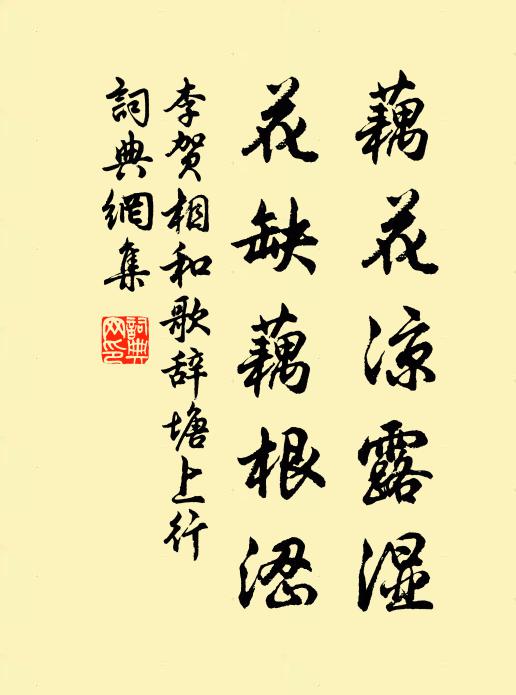 藕花涼露湿
花缺藕根涩
李賀相和歌辞塘上行
詞典網集
詞典网印